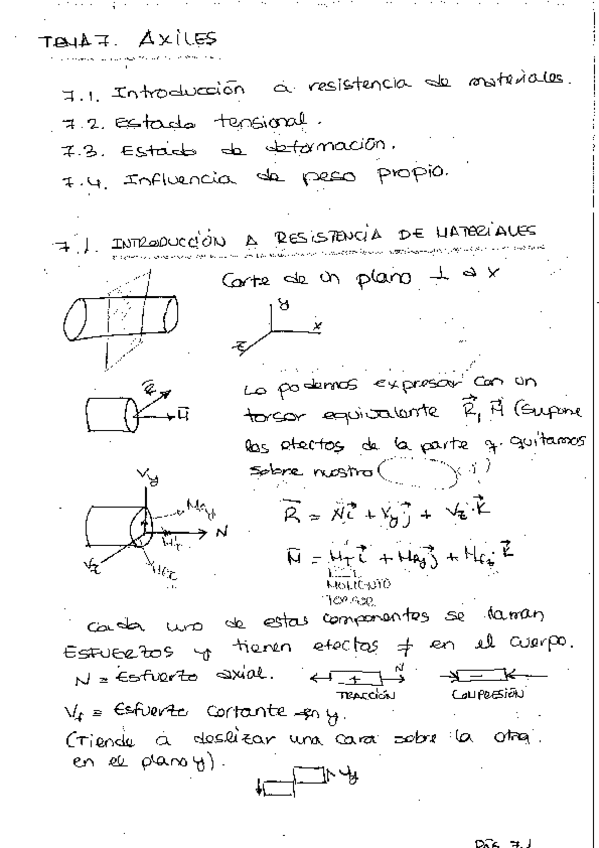 TEMA 7. AXILES
7.1. Introducción a resistencia de materiales.
7.2. Estado tensional.
7.3. Estado de deformación.
7.4. Influencia de peso propio.
7.1. INTRODUCCIÓN A RESISTENCIA DE MATERIALES
Corte de un plano ⊥ a x
y
x
z
R⃗
M⃗
Lo podemos expresar con un
torsor equivalente R⃗, M⃗ (supone
los efectos de la parte q. quitamos
sobre nuestro
Vy
Mfy
N
MT
Vz
Mfz
R̄ = Ni⃗ + Vyj⃗ + Vz·k⃗
M̄ = MTi⃗ + Mfyj⃗ + Mfzk⃗
MOMENTO
TORSOR
Cada uno de estas componentes se llaman
ESFUERZOS y tienen efectos ≠ en el cuerpo.
N = Esfuerzo axial.
N
+
-
TRACCIÓN
COMPRESIÓN
Vy = Esfuerzo cortante en y.
(Tiende a deslizar una cara sobre la otra
en el plano y).
Vy
Pág. 7.1